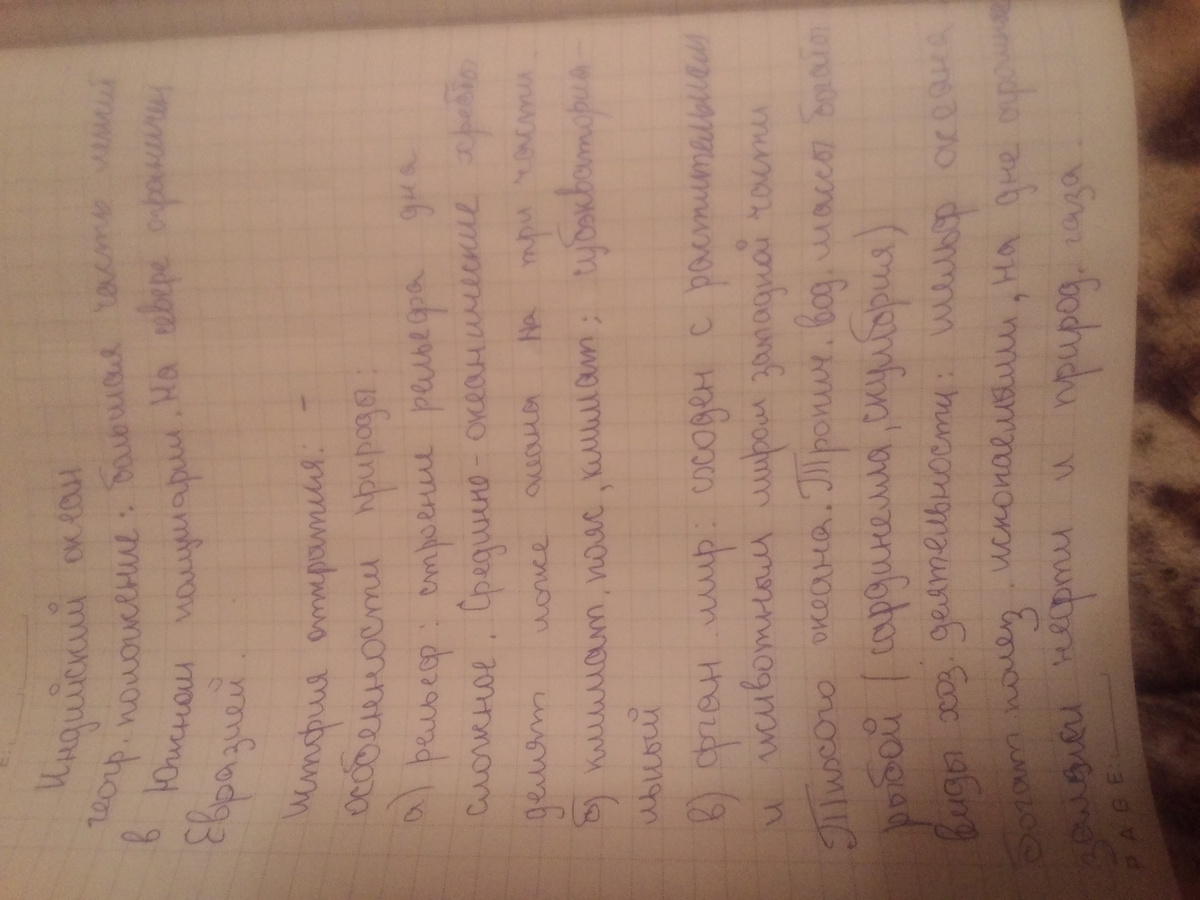 Индийский океан
геогр. положение: большая часть лежит
в Южном полушарии. На севере ограничен
Евразией.
история открытия: -
особенности природы:
а) рельеф: строение рельефа дна
сложное. Срединно-океанические хребты
делят ложе океана на три части.
б) климат. пояс, климат; субэкваториа-
льный
в) орган. мир: сходен с растительным
и животным миром западной части
Тихого океана. Тропич. вод. массы богаты
рыбой (сардинелла, скумбрия)
виды хоз. деятельности: шельф океана
богат полез. ископаемыми, на дне огромные
залежи нефти и природ. газа.
PABE: